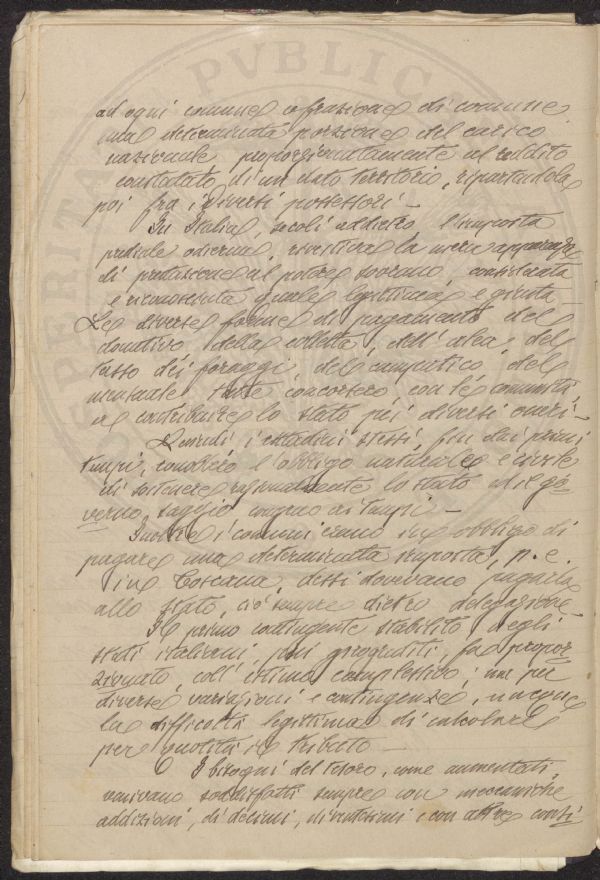 PVBLICA
ad ogni comune o frazione di comune
una determinata porzione del carico
nazionale, proporzionatamente al reddito
constatato, di un dato territorio, ripartendola
poi fra i diversi possessori –
In Italia, secoli addietro l'imposta
prediale odierna, rivestiva la mera apparenza
di prestazione al potere sovrano, considerata
e riconosciuta quale legittima e giusta
Le diverse forme di pagamento del
donativo, della colletta, dell' del
tasso dei foraggi, del campatico, del
tutte concorsero, con le comunità,
a contribuire lo stato pei diversi oneri –
Quindi i cittadini stessi, fin dai primi
tempi, conobbero l'obbligo naturale e civile
di sostenere lo stato od il go
verno, saggio congruo ai tempi –
Inoltre i comuni erano in obbligo di
pagare una determinata imposta, p. e.
in Toscana, dessi dovevano pagarla
allo stato, ciò sempre dietro delegazione –
Il primo contingente stabilito, negli
stati italiani, più progrediti, fu propor
zionato coll' estimo complessivo; ma per
diverse variazioni e contingenze, nacque
la difficoltà legittima di calcolare
per quotità il tributo –
I bisogni del tesoro, come aumentati,
venivano soddisfatti sempre con meccaniche
addizioni, di decimi, di ventesimi e con altre conti